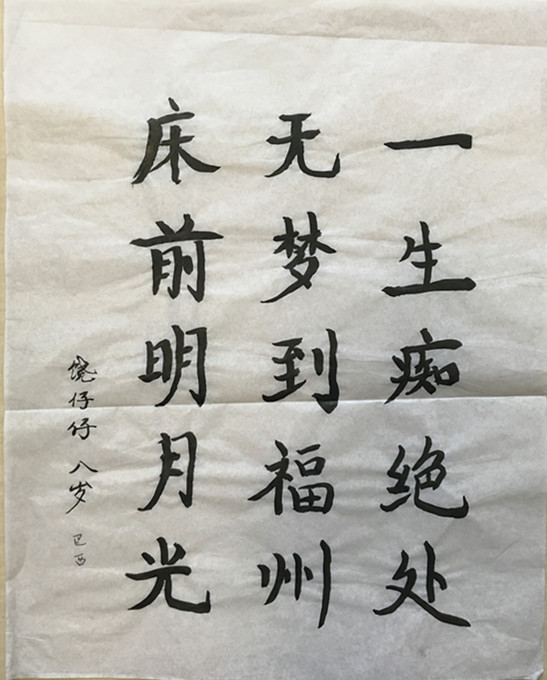 一生痴绝处
无梦到福州
床前明月光
饶仔仔 八岁
巴西